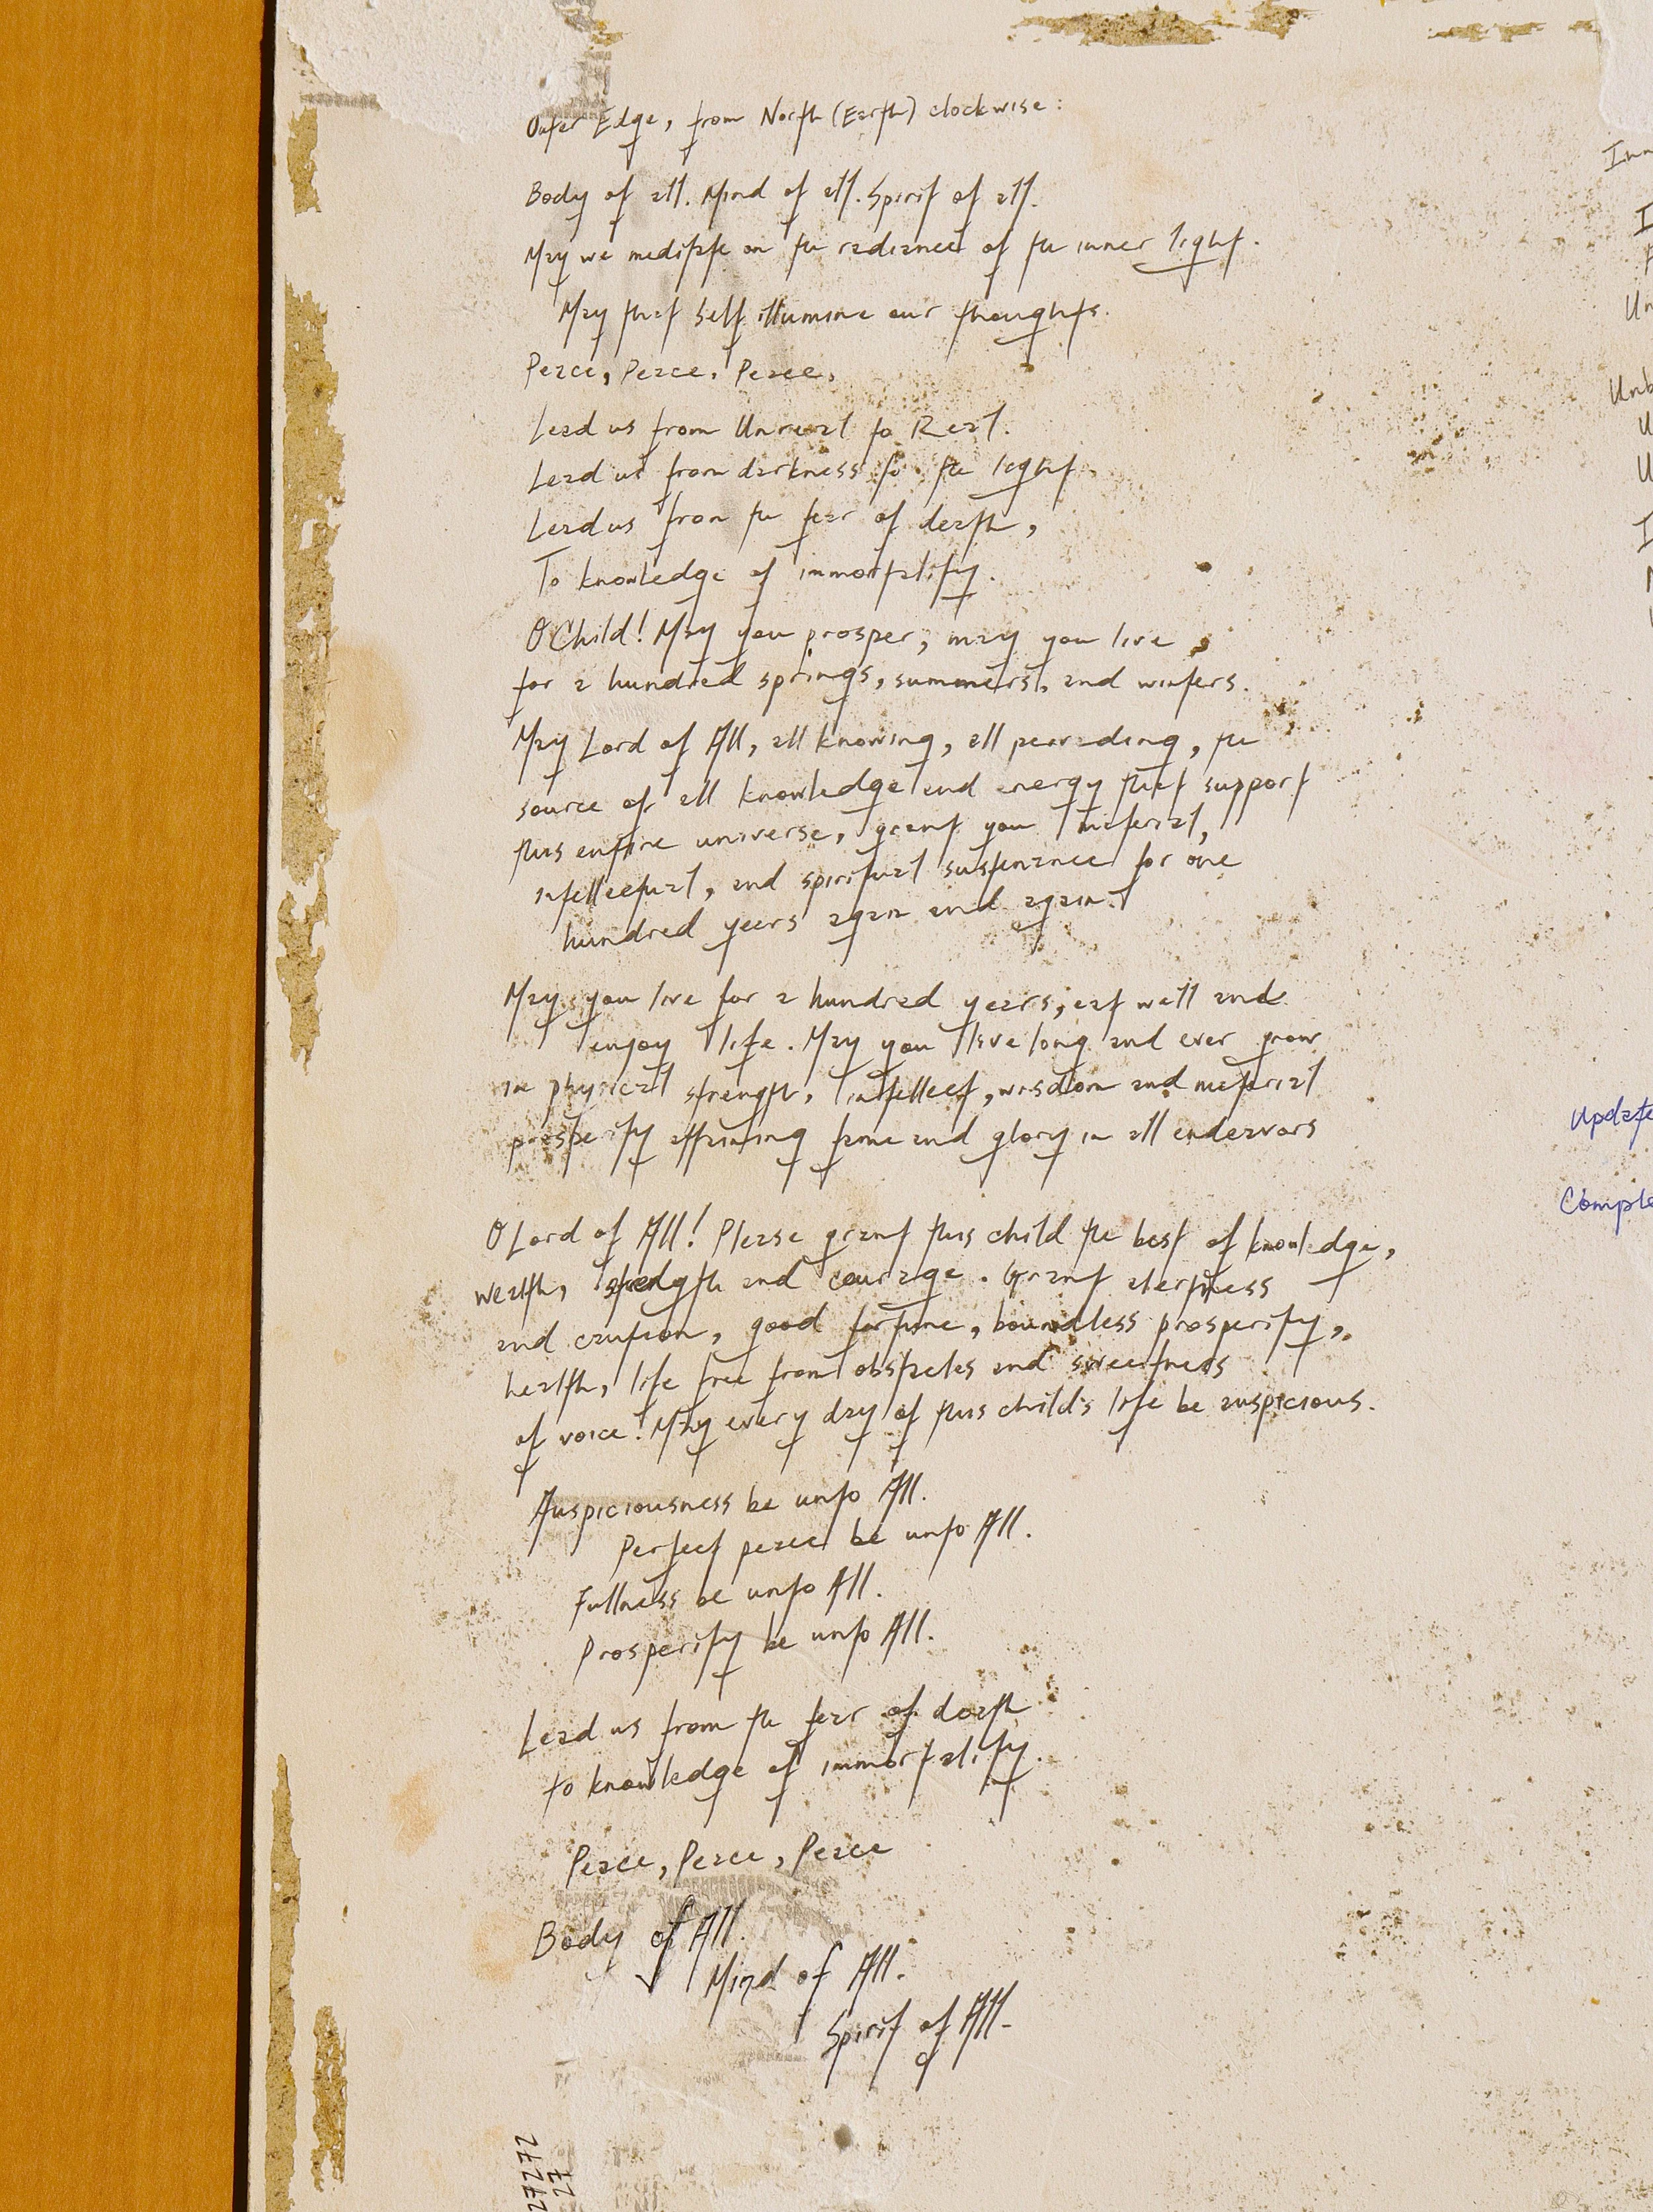 Outer Edge, from North (Earth) clockwise:
Body of all. Mind of all. Spirit of all.
May we meditate on the radiance of the inner light.
May that Self illumine our thoughts.
Peace, Peace, Peace.
Lead us from Unreal to Real.
Lead us from darkness to the light.
Lead us from the fear of death,
To knowledge of immortality.
O Child! May you prosper, may you live
for a hundred springs, summers, and winters.
May Lord of All, all knowing, all pervading, the
source of all knowledge and energy that support
this entire universe, grant you material,
intellectual, and spiritual sustenance for one
hundred years again and again.
May you live for a hundred years, eat well and
enjoy life. May you live long and ever grow
in physical strength, intellect, wisdom and material
prosperity attaining fame and glory in all endeavors
O Lord of All! Please grant this child the best of knowledge,
wealth, strength and courage. Grant alertness
and caution, good fortune, boundless prosperity,
health, life free from obstacles and sweetness
of voice! May every day of this child's life be auspicious.
Auspiciousness be unto All.
Perfect peace be unto All.
Fullness be unto All.
Prosperity be unto All.
Lead us from the fear of death
to knowledge of immortality.
Peace, Peace, Peace
Body of All.
Mind of All.
Spirit of All.
Update